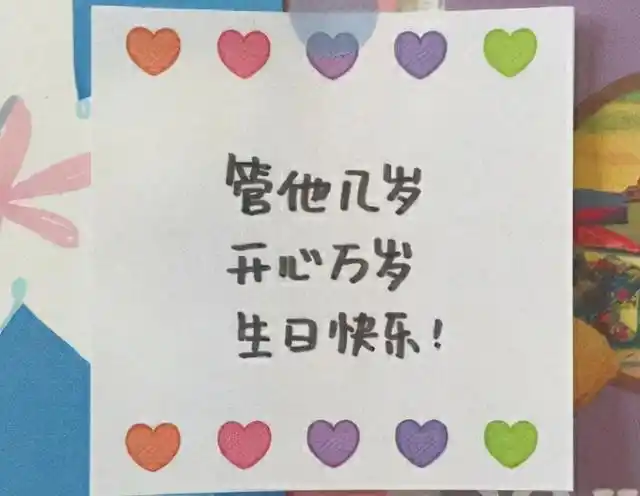 管他几岁
开心万岁
生日快乐!